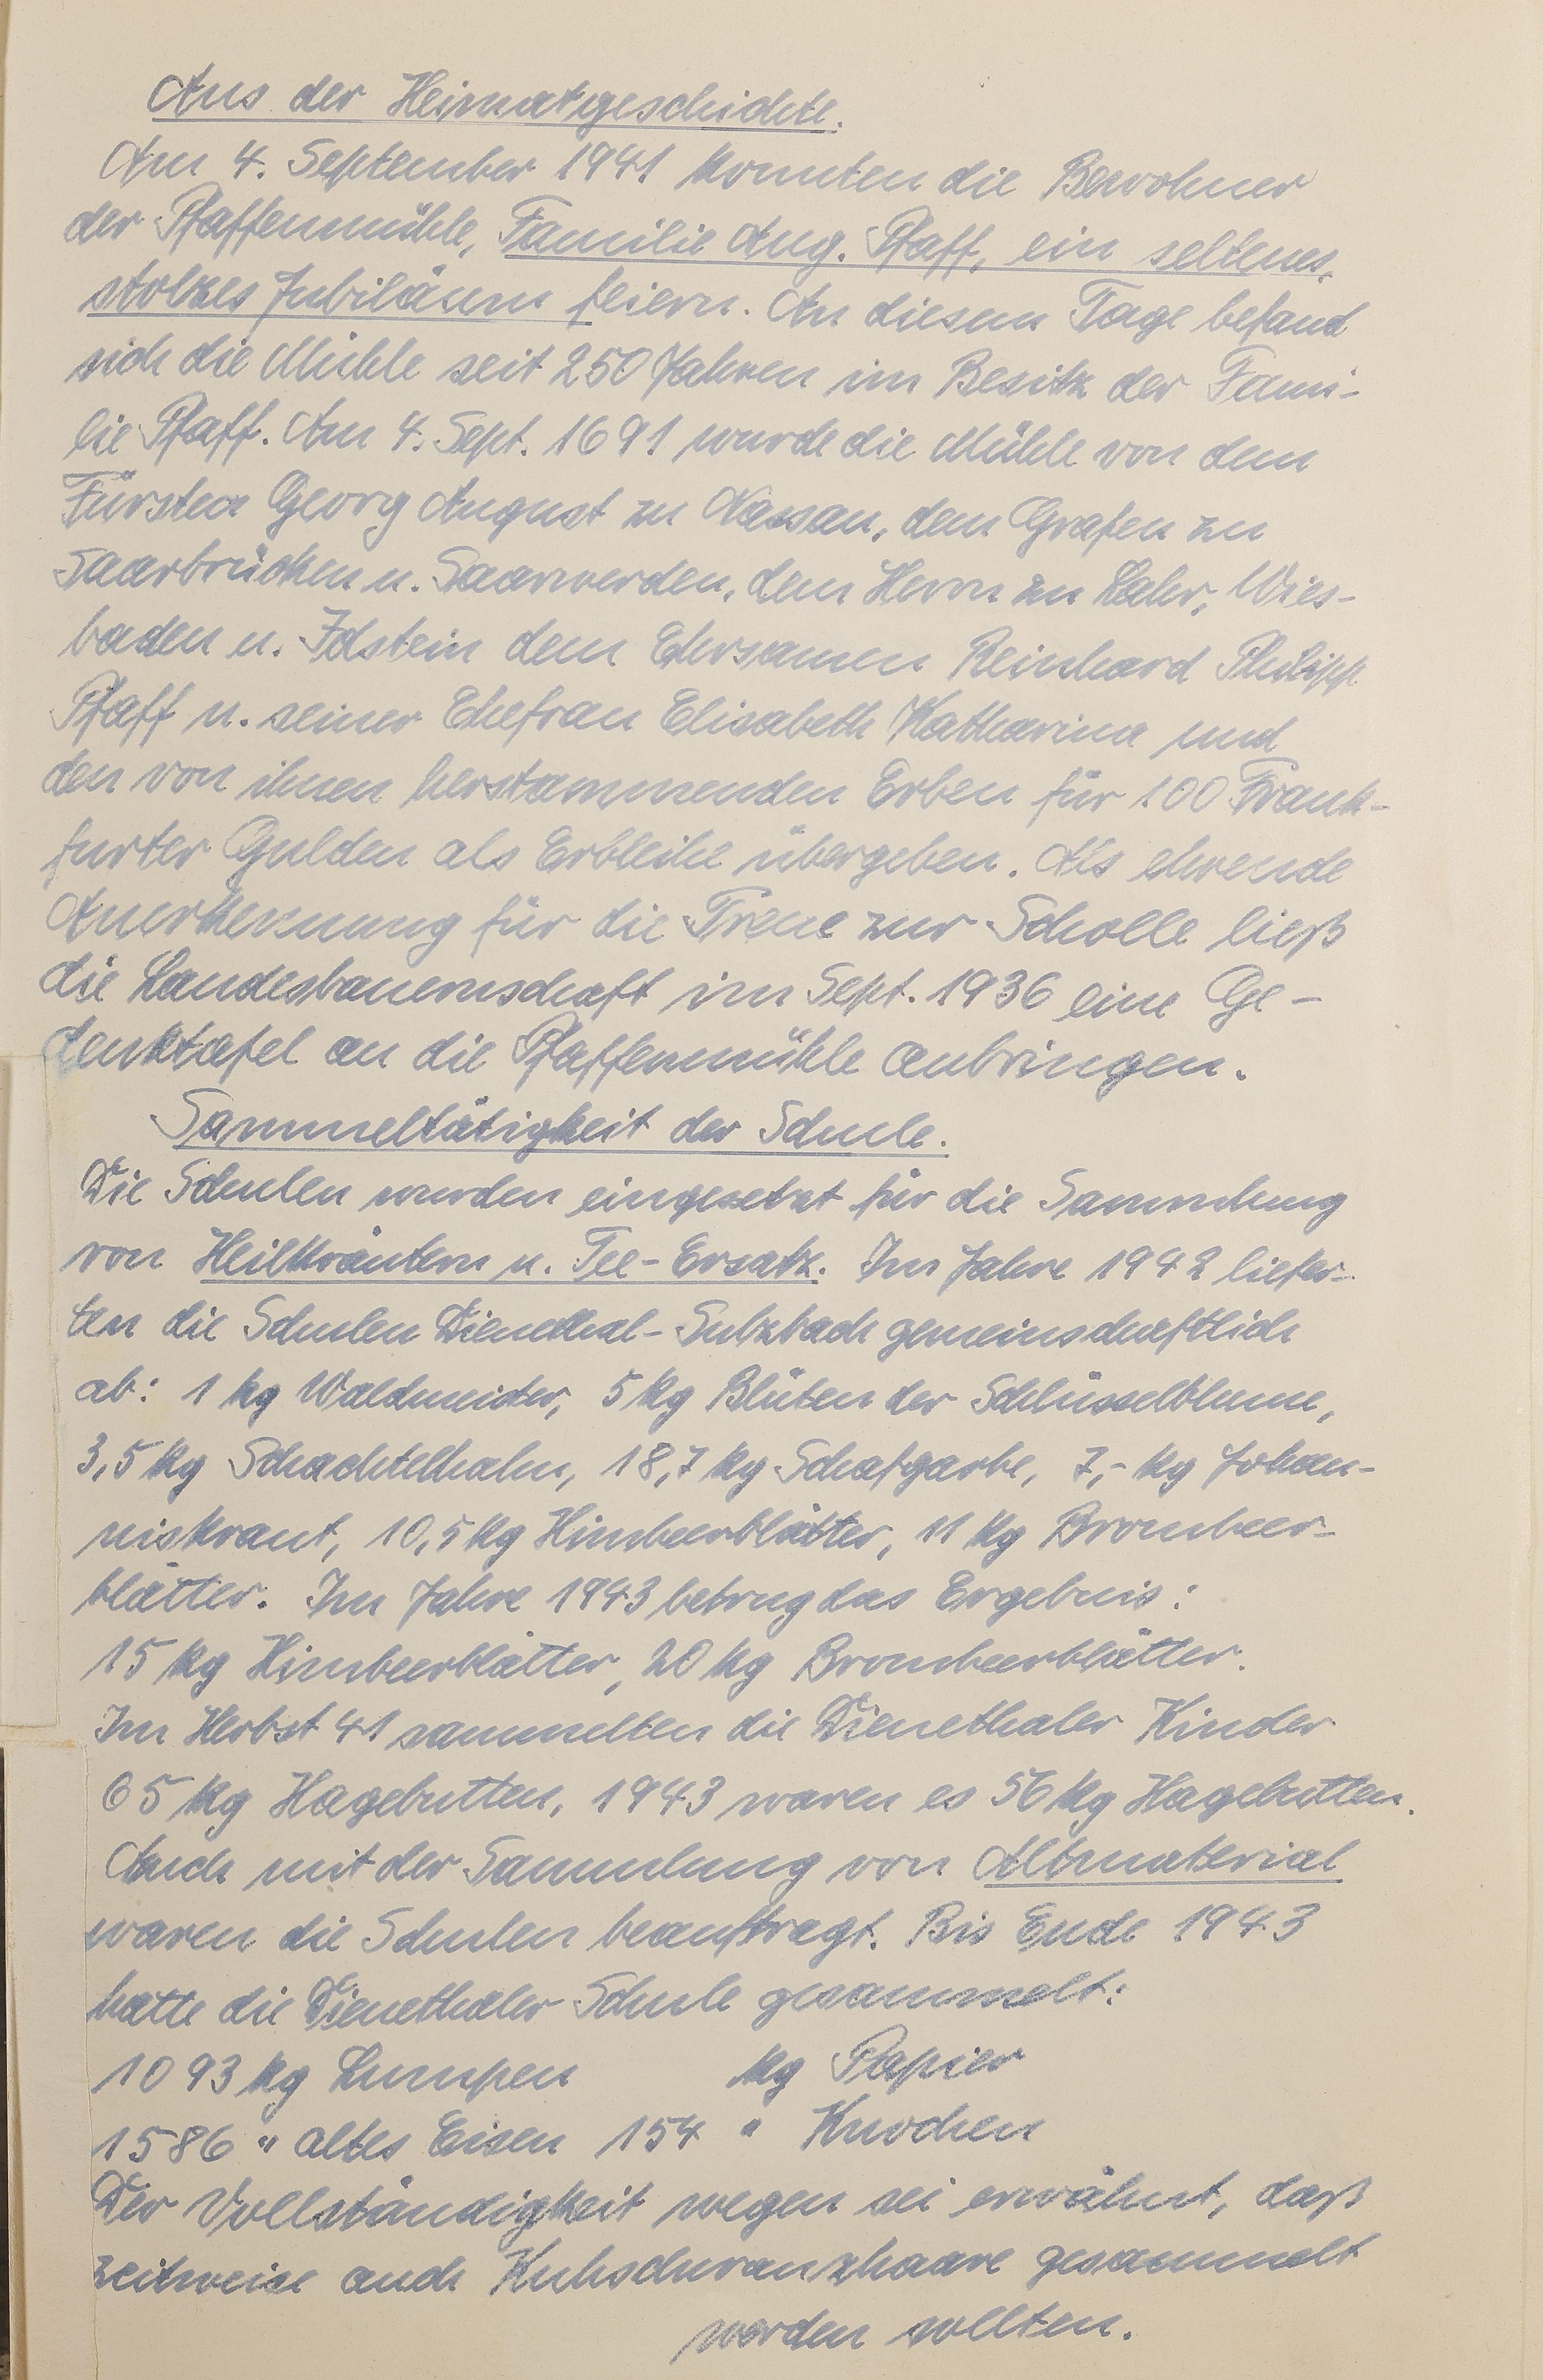 Aus der Heimatgeschichte.
Am 4. September 1941 konnten die Bewohner
der Pfaffenmühle, Familie Aug. Pfaff, ein seltenes,
stolzes Jubiläum feiern. An diesem Tage befand
sich die Mühle seit 250 Jahren im Besitz der Fami-
lie Pfaff. Am 4. Sept. 1691 wurde die Mühle von dem
Fürsten Georg August zu Nassau, dem Grafen zu
Saarbrücken u. Saarwerden, dem Herrn zu Lahr, Wies-
baden u. Idstein dem Ehrsamen Reinhard Philipp
Pfaff u. seiner Ehefrau Elisabeth Katharina und
den von ihnen herstammenden Erben für 100 Frank-
furter Gulden als Erbleihe übergeben. Als ehrende
Anerkennung für die Treue zur Scholle ließ
die Landesbauernschaft im Sept. 1936 eine Ge-
denktafel an die Pfaffenmühle anbringen.
Sammeltätigkeit der Schule.
Die Schulen wurden eingesetzt für die Sammlung
von Heilkräutern u. Tee-Ersatz. Im Jahre 1942 liefer-
ten die Schulen Dienethal-Sulzbach gemeinschaftlich
ab: 1 kg Waldmeister, 5 kg Blüten der Schlüsselblume,
3,5 kg Schachtelhalm, 18,7 kg Schafgarbe, 7,- kg Johan-
niskraut, 10,5 kg Himbeerblätter, 11 kg Brombeer-
blätter. Im Jahre 1943 betrug das Ergebnis:
15 kg Himbeerblätter, 20 kg Brombeerblätter.
Im Herbst 41 sammelten die Dienethaler Kinder
65 kg Hagebutten, 1943 waren es 56 kg Hagebutten.
Auch mit der Sammlung von Altmaterial
waren die Schulen beauftragt. Bis Ende 1943
hatte die Dienethaler Schule gesammelt:
1093 kg Lumpen kg Papier
1586 " altes Eisen 154 " Knochen
Der Vollständigkeit wegen sei erwähnt, daß
zeitweise auch Kuhschwanzhaare gesammelt
werden sollten.